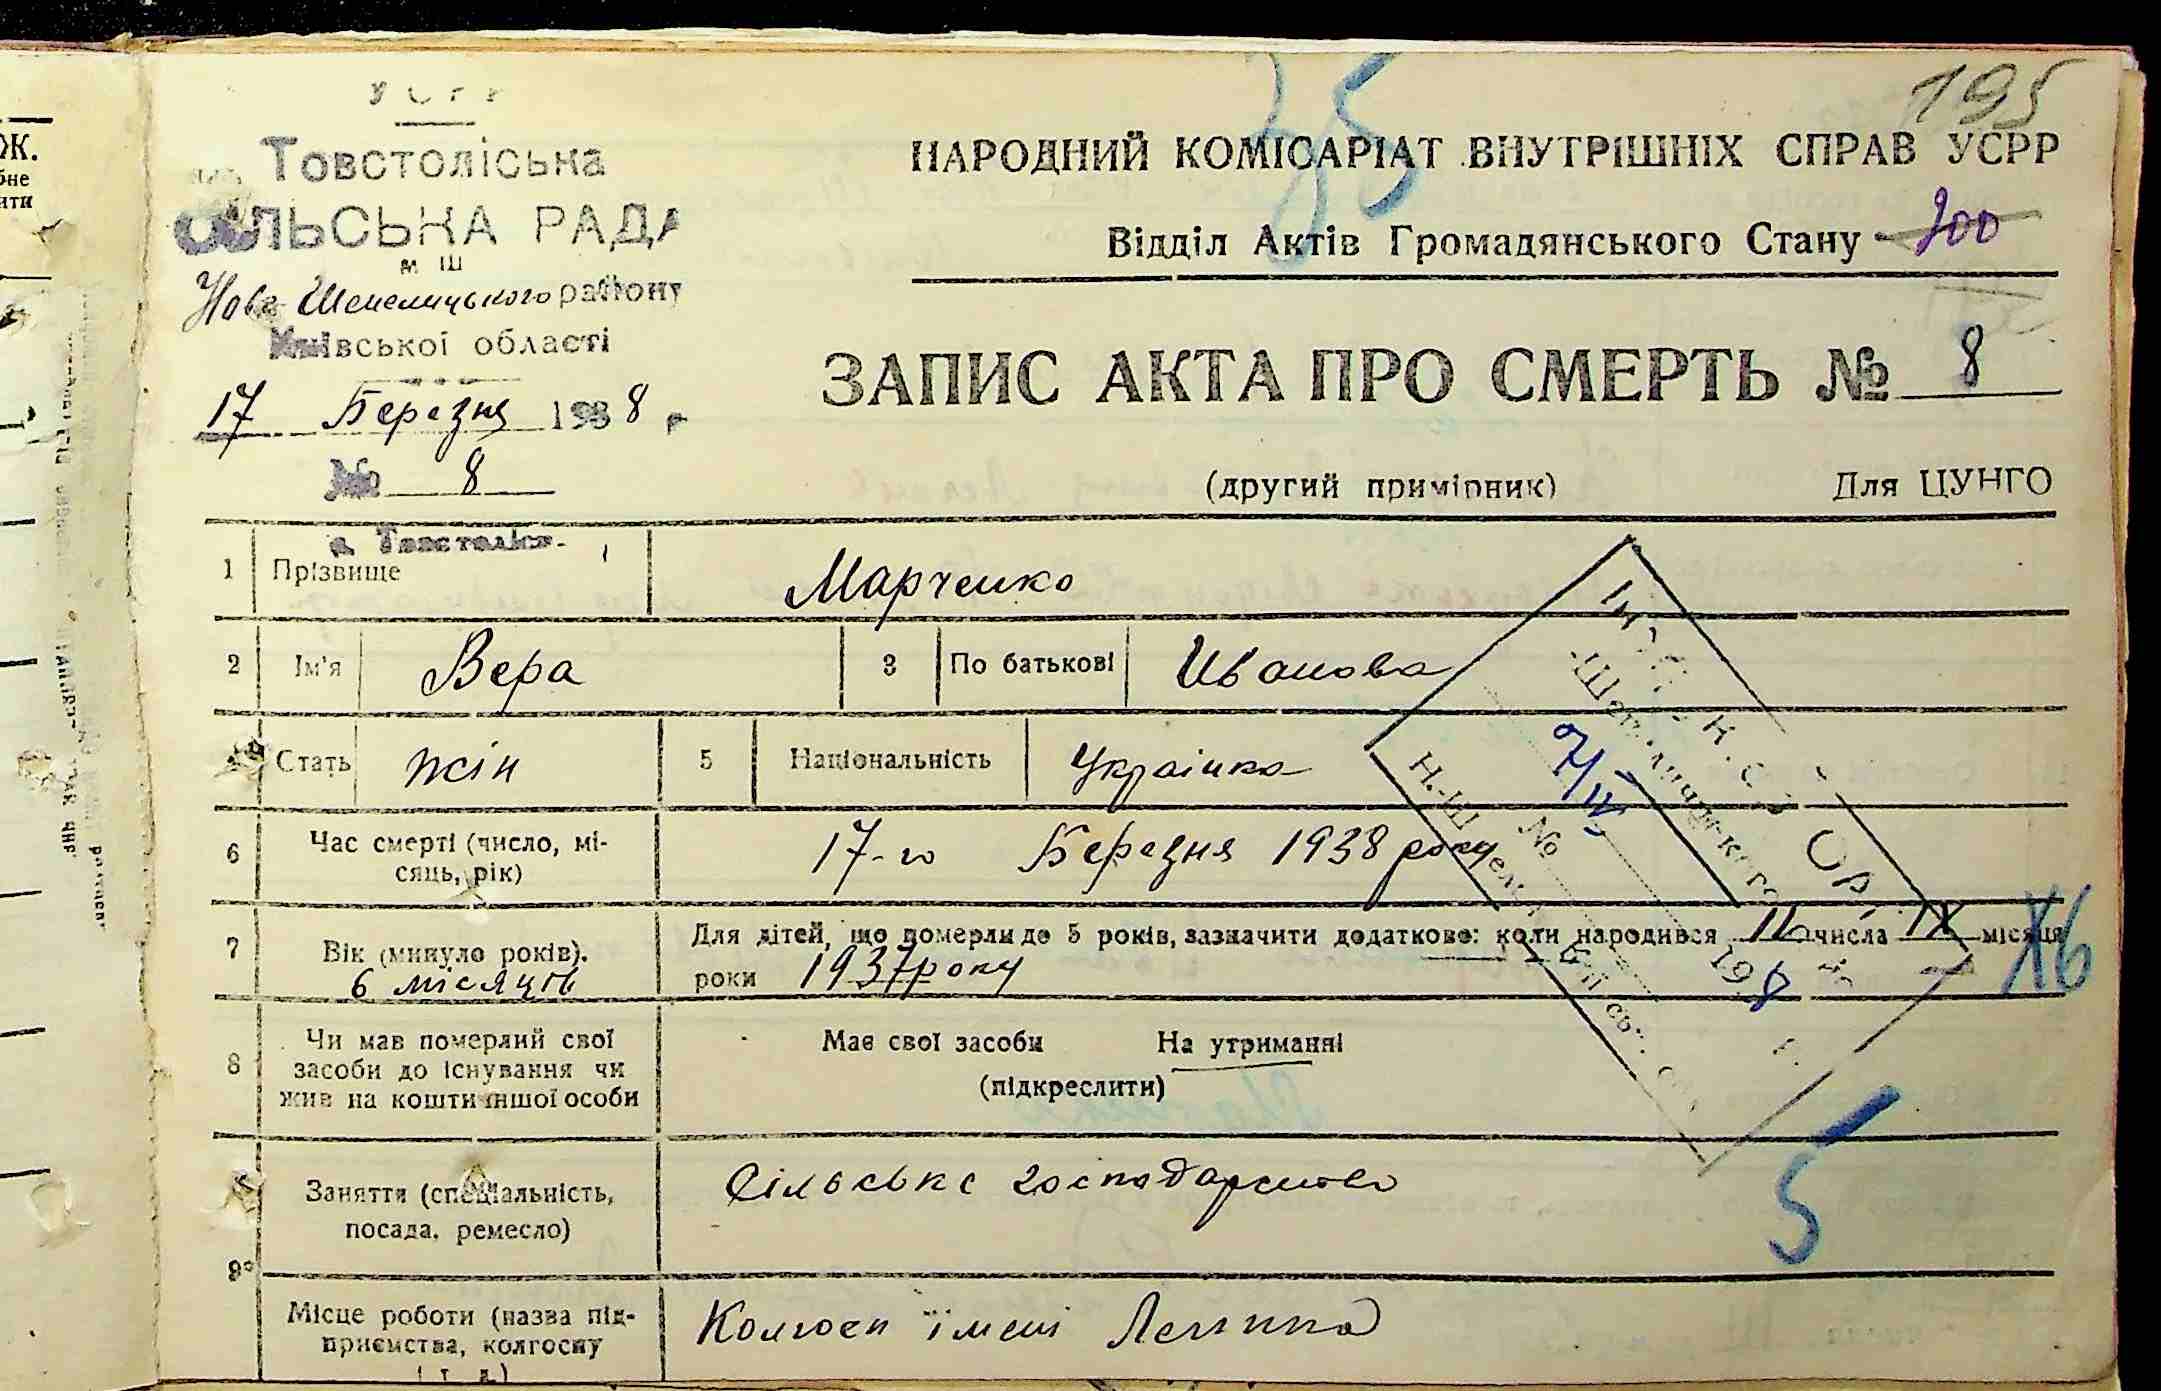 Ж.
бне
ити
УСРР
195
35
Товстоліська
СІЛЬСЬКА РАДА
Ново Шепелицького району
Київської області
17 Березня 1938 р
№ 8
с. Товстоліс.
НАРОДНИЙ КОМІСАРІАТ ВНУТРІШНІХ СПРАВ УСРР
Відділ Актів Громадянського Стану 200
ЗАПИС АКТА ПРО СМЕРТЬ № 8
(другий примірник) Для ЦУНГО
1 Прізвище Марченко
2 Ім'я Вера 3 По батькові Иванова
4 Стать жін 5 Національність Українка
6 Час смерті (число, мі-
сяць, рік) 17-го Березня 1938 року
7 Вік (минуло років).
6 місяців
Для дітей, що померли до 5 років, зазначити додатково: коли народився 11 числа IX місяця
роки 1937 року
Хб
8 Чи мав померлий свої
засоби до існування чи
жив на кошти іншої особи
Має свої засоби На утриманні
(підкреслити)
9 Заняття (спеціальність,
посада, ремесло) Сільське господарство
5
9а Місце роботи (назва під-
приємства, колгоспу
і т. д.) Колгосп імені Леніна
7/IV
№
198